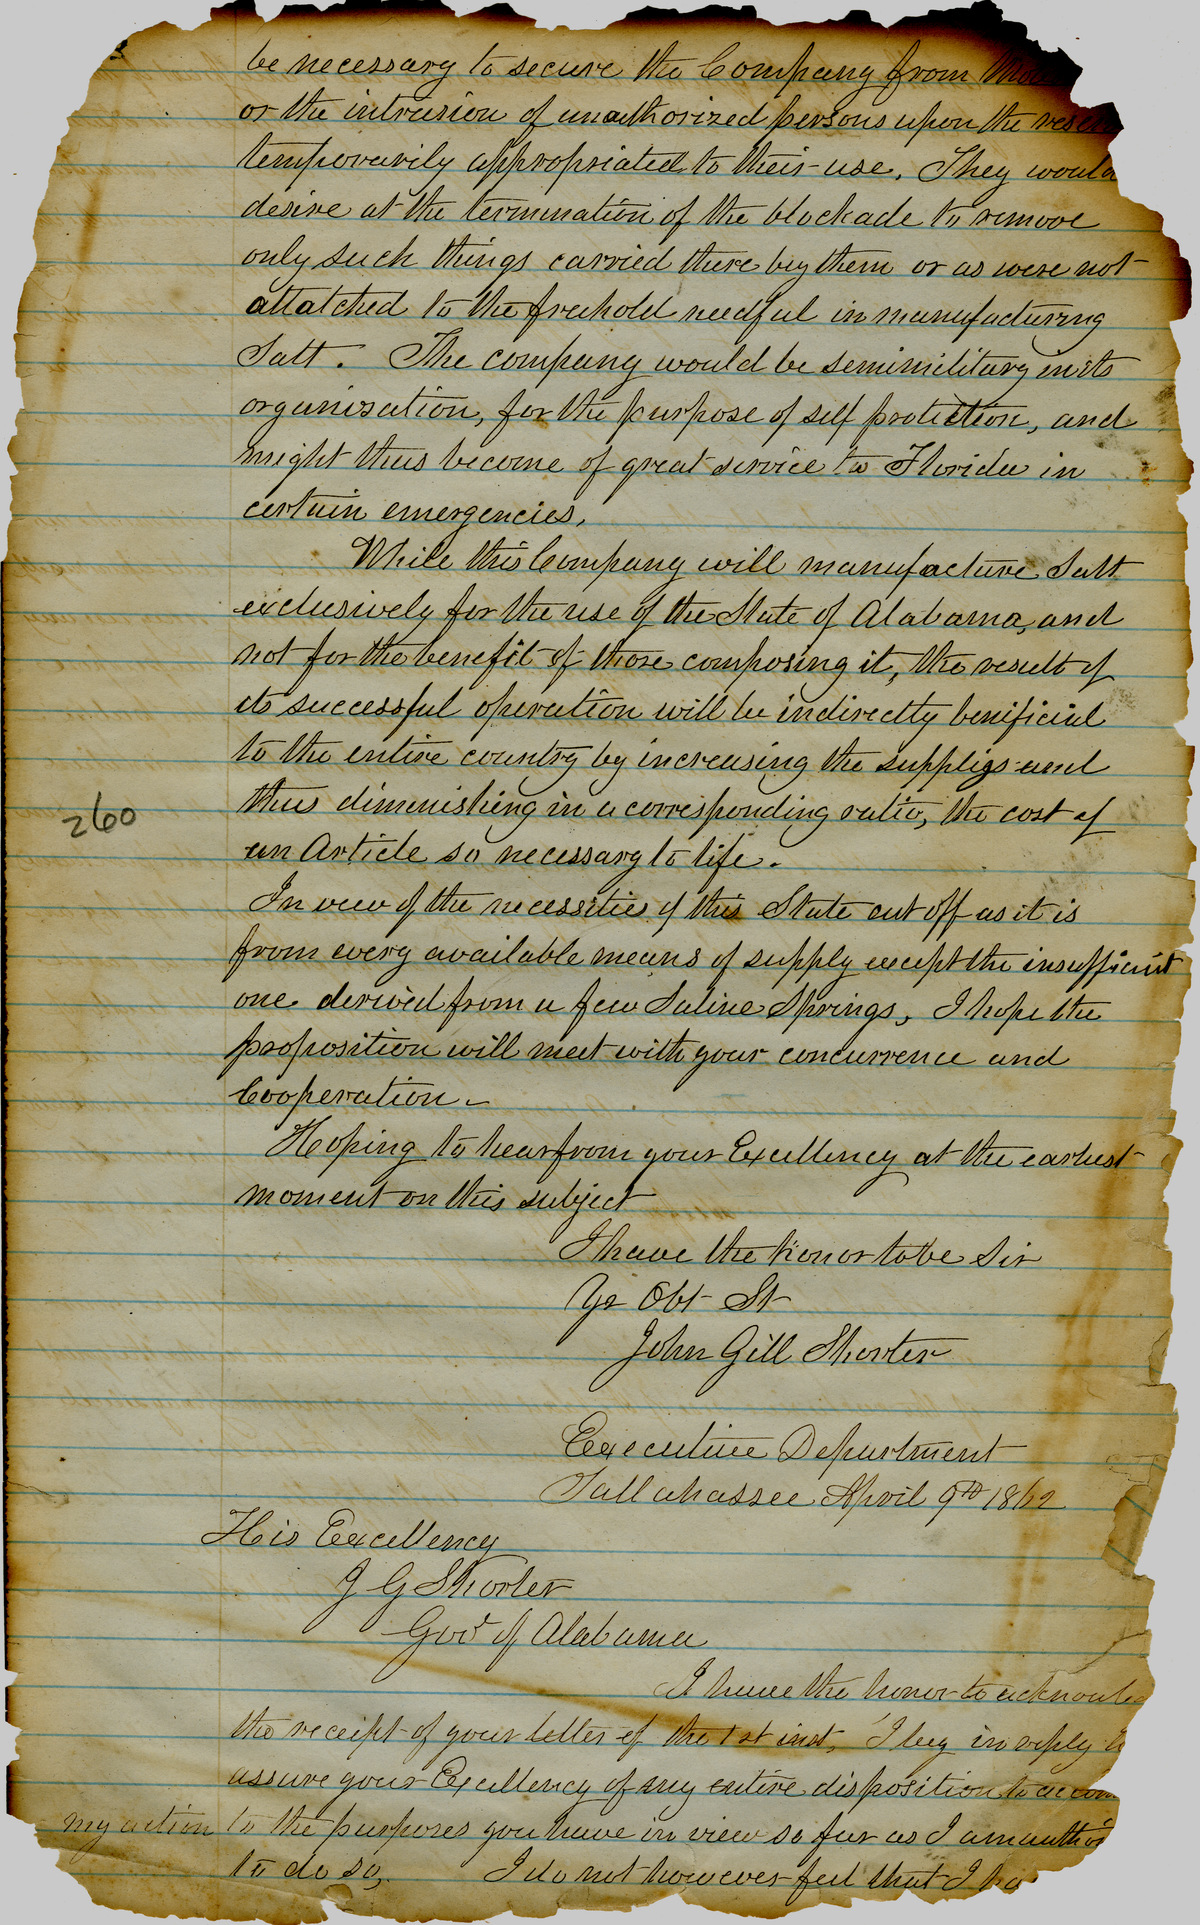 be necessary to secure the Company from
or the intrusion of unauthorized persons upon the
temporarily appropriated to their use. They would
desire at the termination of the blockade to remove
only such things carried there by them or as were not
attatched to the freehold needful in manufacturing
Salt. The company would be semimilitary in its
organization, for the purpose of self protection, and
might thus become of great service to Florida in
certain emergencies.
While this Company will manufacture Salt
exclusively for the use of the State of Alabama, and
not for the benefit of those composing it, the result of
its successful operation will be indirectly benificial
to the entire country by increasing the supplies and
260
thus diminishing in a corresponding ratio, the cost of
an Article so necessary to life.
In view of the necessities of this State cut off as it is
from every available means of supply except the insufficient
one derived from a few Saline Springs, I hope the
proposition will meet with your concurrence and
Cooperation.
Hoping to hear from your Excellency at the earliest
moment on this subject
I have the honor to be Sir
Yr Obt St
John Gill Shorter
Executive Department
Tallahassee April 9th 1862
His Excellency
J G Shorter
Govr of Alabama
I have the honor to
the receipt of your letter of the 1st inst, I beg in reply
assure your Excellency of my entire disposition to
my action to the purposes you have in view so far as I am
to do so, I do not however feel that I